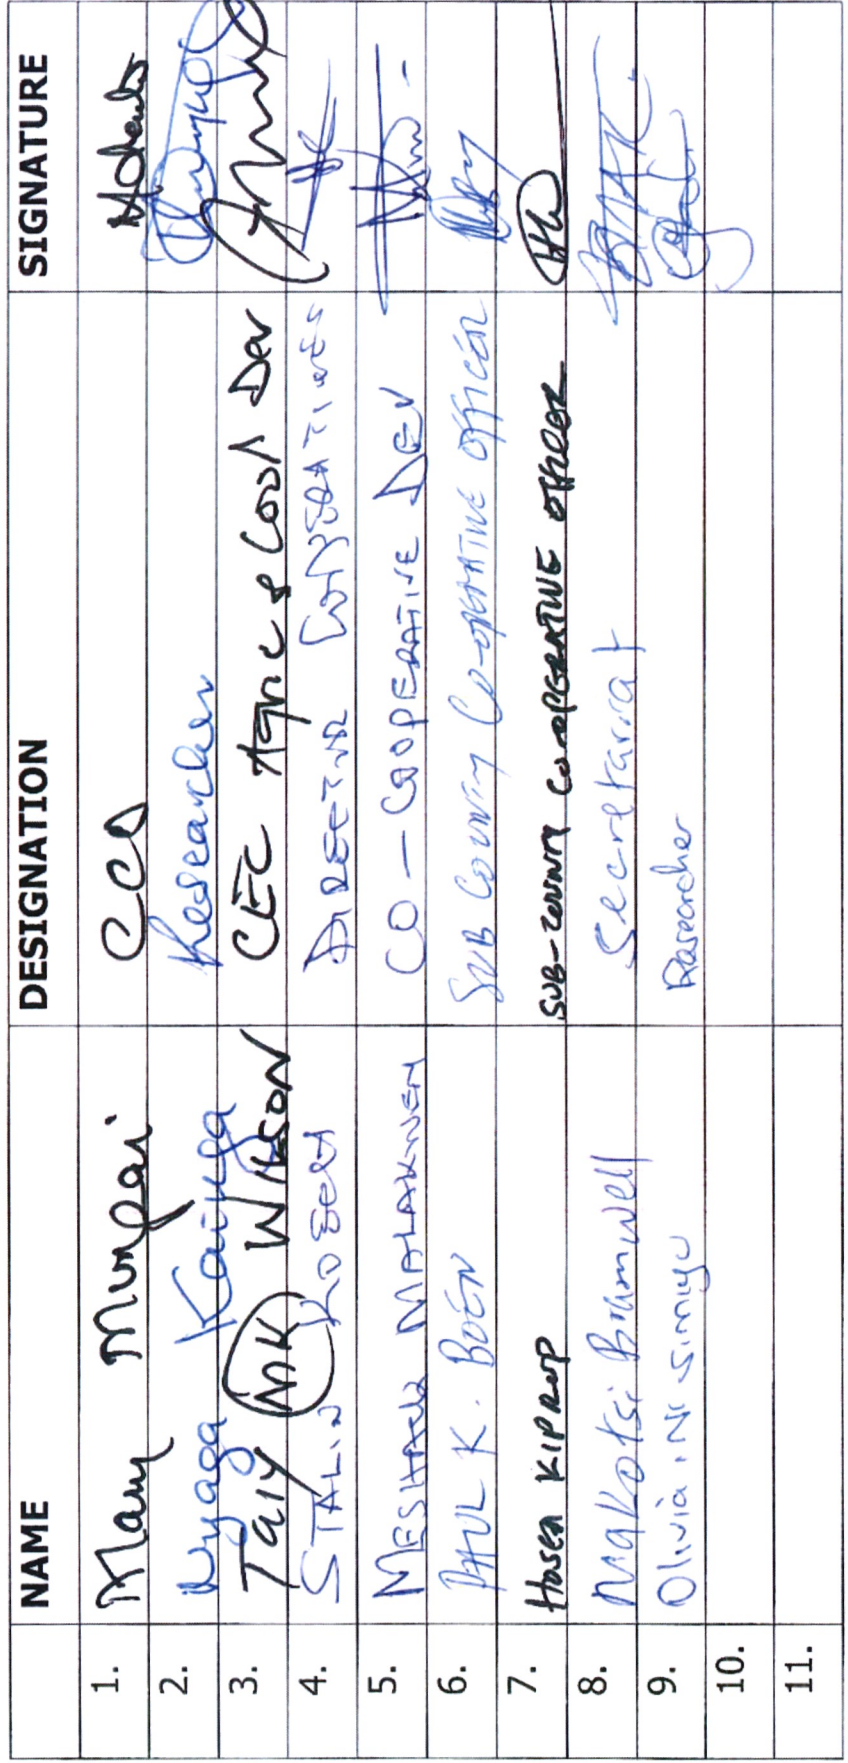 NAME DESIGNATION SIGNATURE
1. Mary Mungai CCO
2. Nyaga Kainga Researcher
3. Taiy MK WILSON CEC Agric & Coop Dev
4. STALIN KOSGEI DIRECTOR COOPERATIVES
5. MESHACK MALAKWEN CO-COOPERATIVE DEV
6. PAUL K. BOEN SUB COUNTY CO-OPERATIVE OFFICER
7. Hosea KIPROP SUB-COUNTY CO-OPERATIVE OFFICER
8. Makotsi Bramwell Secretariat
9. Olivia N. Simiyu Researcher
10.
11.